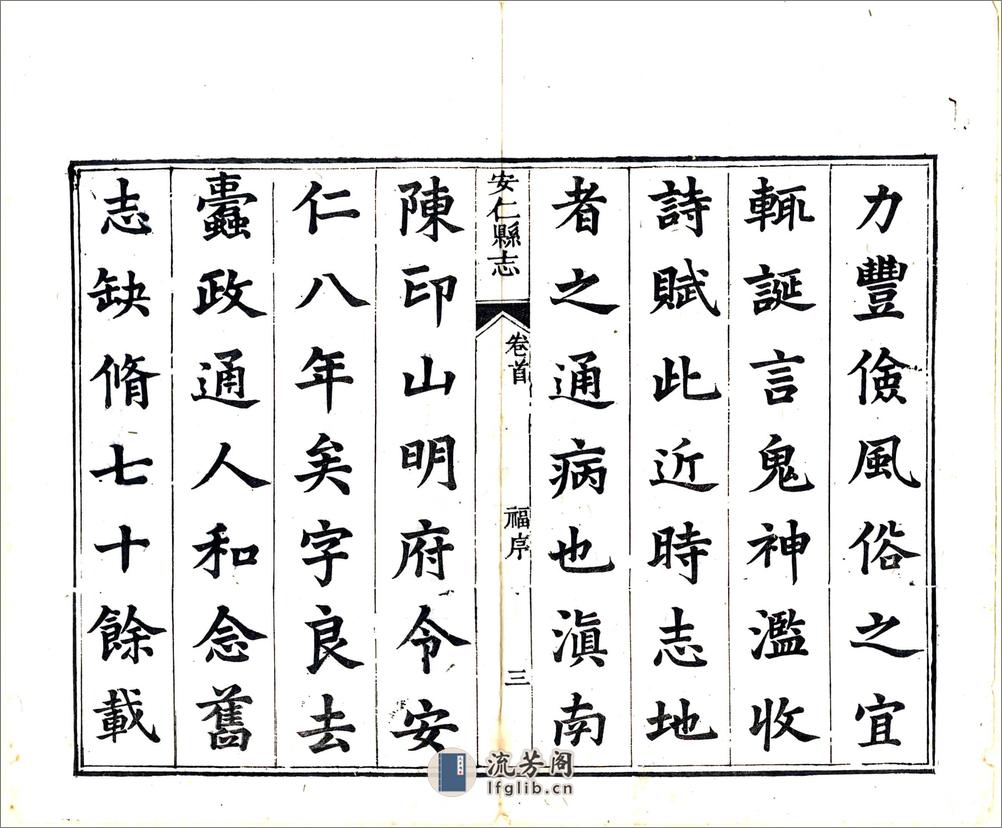 力豐儉風俗之宜
輒誕言鬼神濫收
詩賦此近時志地
者之通病也滇南
安仁縣志
卷首
福序
三
陳印山明府令安
仁八年矣字良去
蠹政通人和念舊
志缺脩七十餘載
流芳阁
lfglib.cn